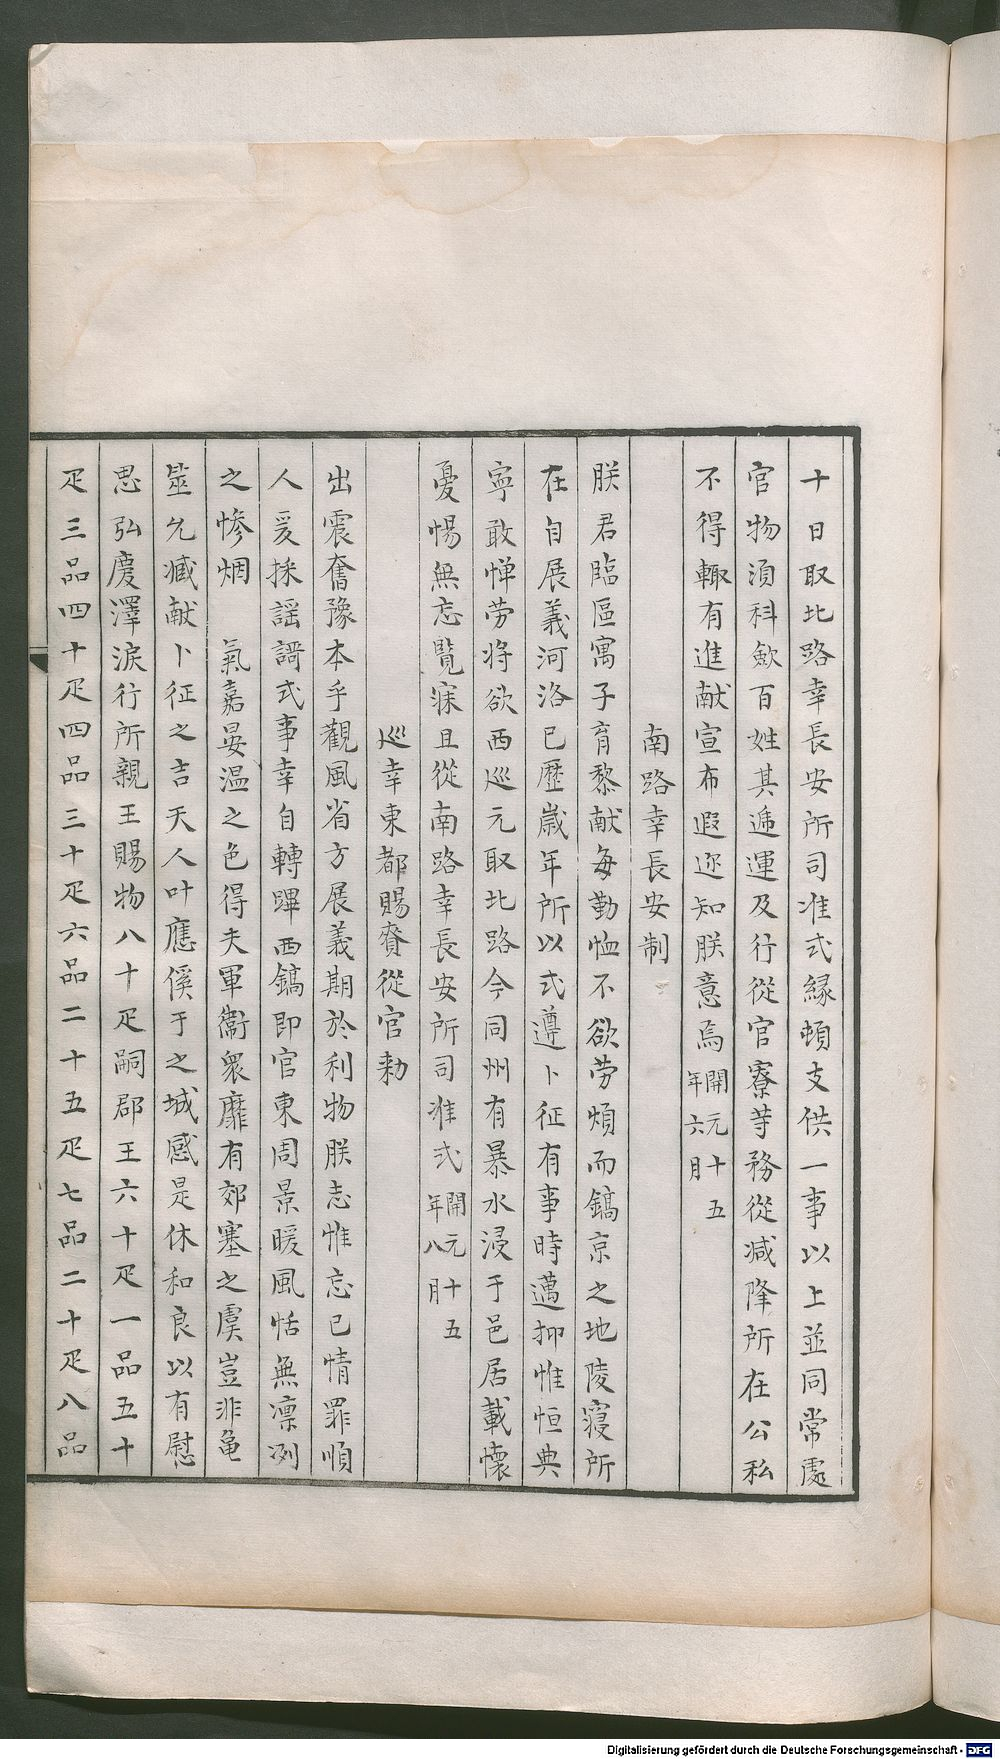 十日取北路幸長安所司准式緣頓支供一事以上並同常處
官物須科歛百姓其逓運及行從官寮䓁務從减降所在公私
不得輙有進献宣布遐迩知朕意焉開元十五年六月
南路幸長安制
朕君臨區寓子育黎献每勤恤不欲劳煩而鎬京之地陵寝所
在自展義河洛已歷歲年所以式遵卜征有事時邁抑惟恒典
寧敢惮劳将欲西巡元取北路今同州有暴水浸于邑居載懷
憂惕無忘覽寐且從南路幸長安所司准式開元十五年八月
巡幸東都賜賚從官勅
出震奮豫本乎觀風省方展義期於利物朕志惟忘已情罪順
人爰採謡謌式事幸自轉蹕西鎬即官東周景暖風恬無凛冽
之惨烟　氣嘉晏温之色得夫軍衞衆靡有郊塞之虞豈非龟
筮允臧献卜征之吉天人叶應徯于之城感是休和良以有慰
思弘慶澤淚行所親王賜物八十疋嗣郡王六十疋一品五十
疋三品四十疋四品三十疋六品二十五疋七品二十疋八品
Digitalisierung gefördert durch die Deutsche Forschungsgemeinschaft - DFG